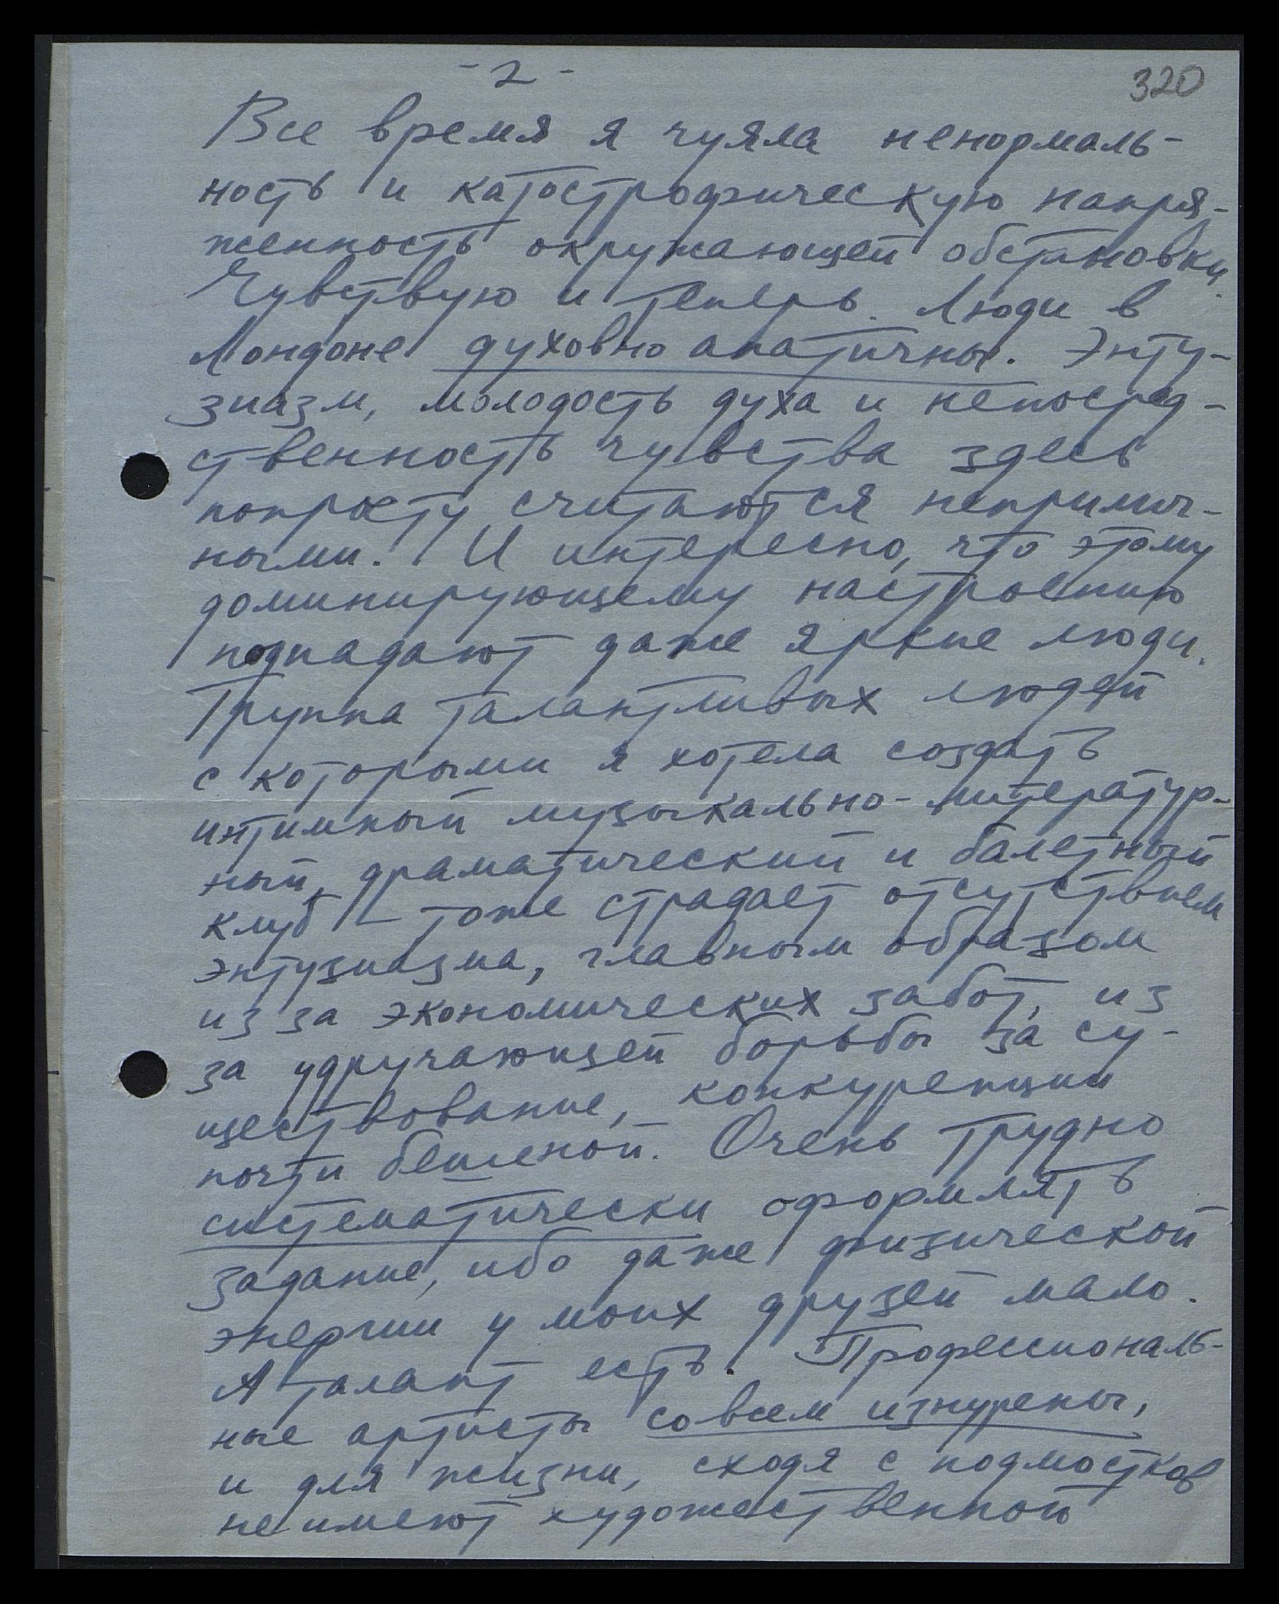 - 2 -
320
Все время я чуяла ненормаль-
ность и катострофическую напря-
женность окружающей обстановки.
Чувствую и теперь. Люди в
Лондоне духовно апатичны. Энту-
зиазм, молодость духа и непосред-
ственность чувства здесь
попросту считаются неприлич-
ными. И интересно, что этому
доминирующему настроению
подпадают даже яркие люди.
Группа талантливых людей
с которыми я хотела создать
интимный музыкально-литератур-
ный, драматический и балетный
клуб – тоже страдает отсутствием
энтузиазма, главным образом
из за экономических забот, из
за удручающей борьбы за су-
ществование, конкуренции
почти бешеной. Очень трудно
систематически оформлять
задание, ибо даже физической
энергии у моих друзей мало.
А талант есть. Профессиональ-
ные артисты совсем изнурены,
и для жизни, сходя с подмостков
не имеют художественной